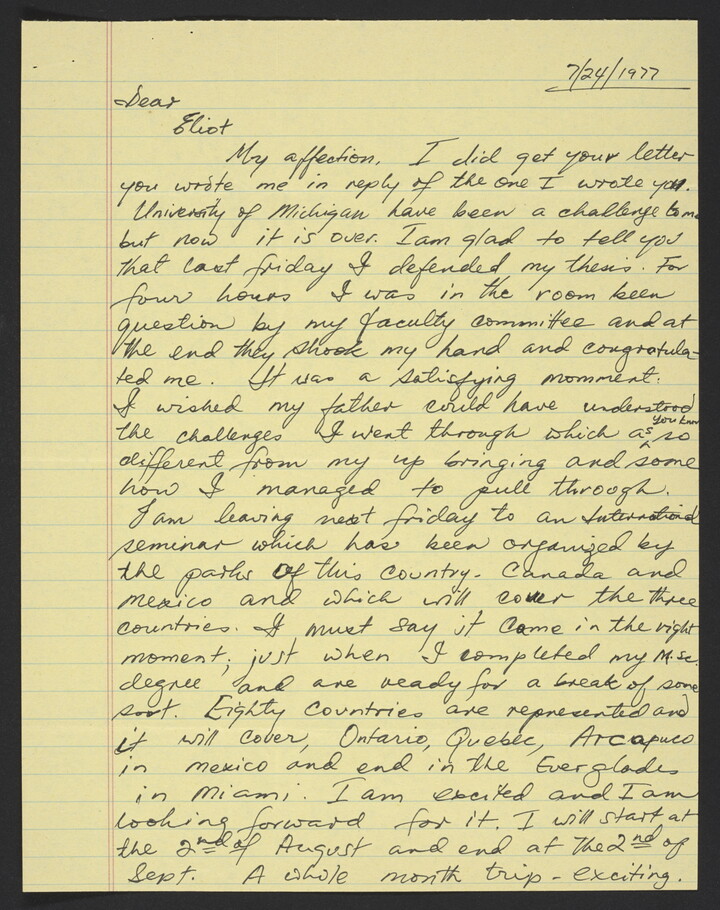 7/24/1977
Dear
Eliot
My affection. I did get your letter
you wrote me in reply of the one I wrote you.
University of Michigan have been a challenge to me
but now it is over. I am glad to tell you
that last friday I defended my thesis. For
four hours I was in the room been
question by my faculty committee and at
the end they shook my hand and congratula-
ted me. It was a satisfying momment.
I wished my father could have understood
the challenges I went through which as you know so
different from my up bringing and some
how I managed to pull through.
I am leaving next friday to an International
seminar which has been organized by
the parks of this country. Canada and
mexico and which will cover the three
countries. I must say it came in the right
moment, just when I completed my M.Sc.
degree and are ready for a break of some
sort. Eighty countries are represented and
it will cover, Ontario, Quebec, Arcapuco
in mexico and end in the Everglades
in Miami. I am excited and I am
looking forward for it. I will start at
the 2nd of August and end at the 2nd of
Sept. A whole month trip - exciting.